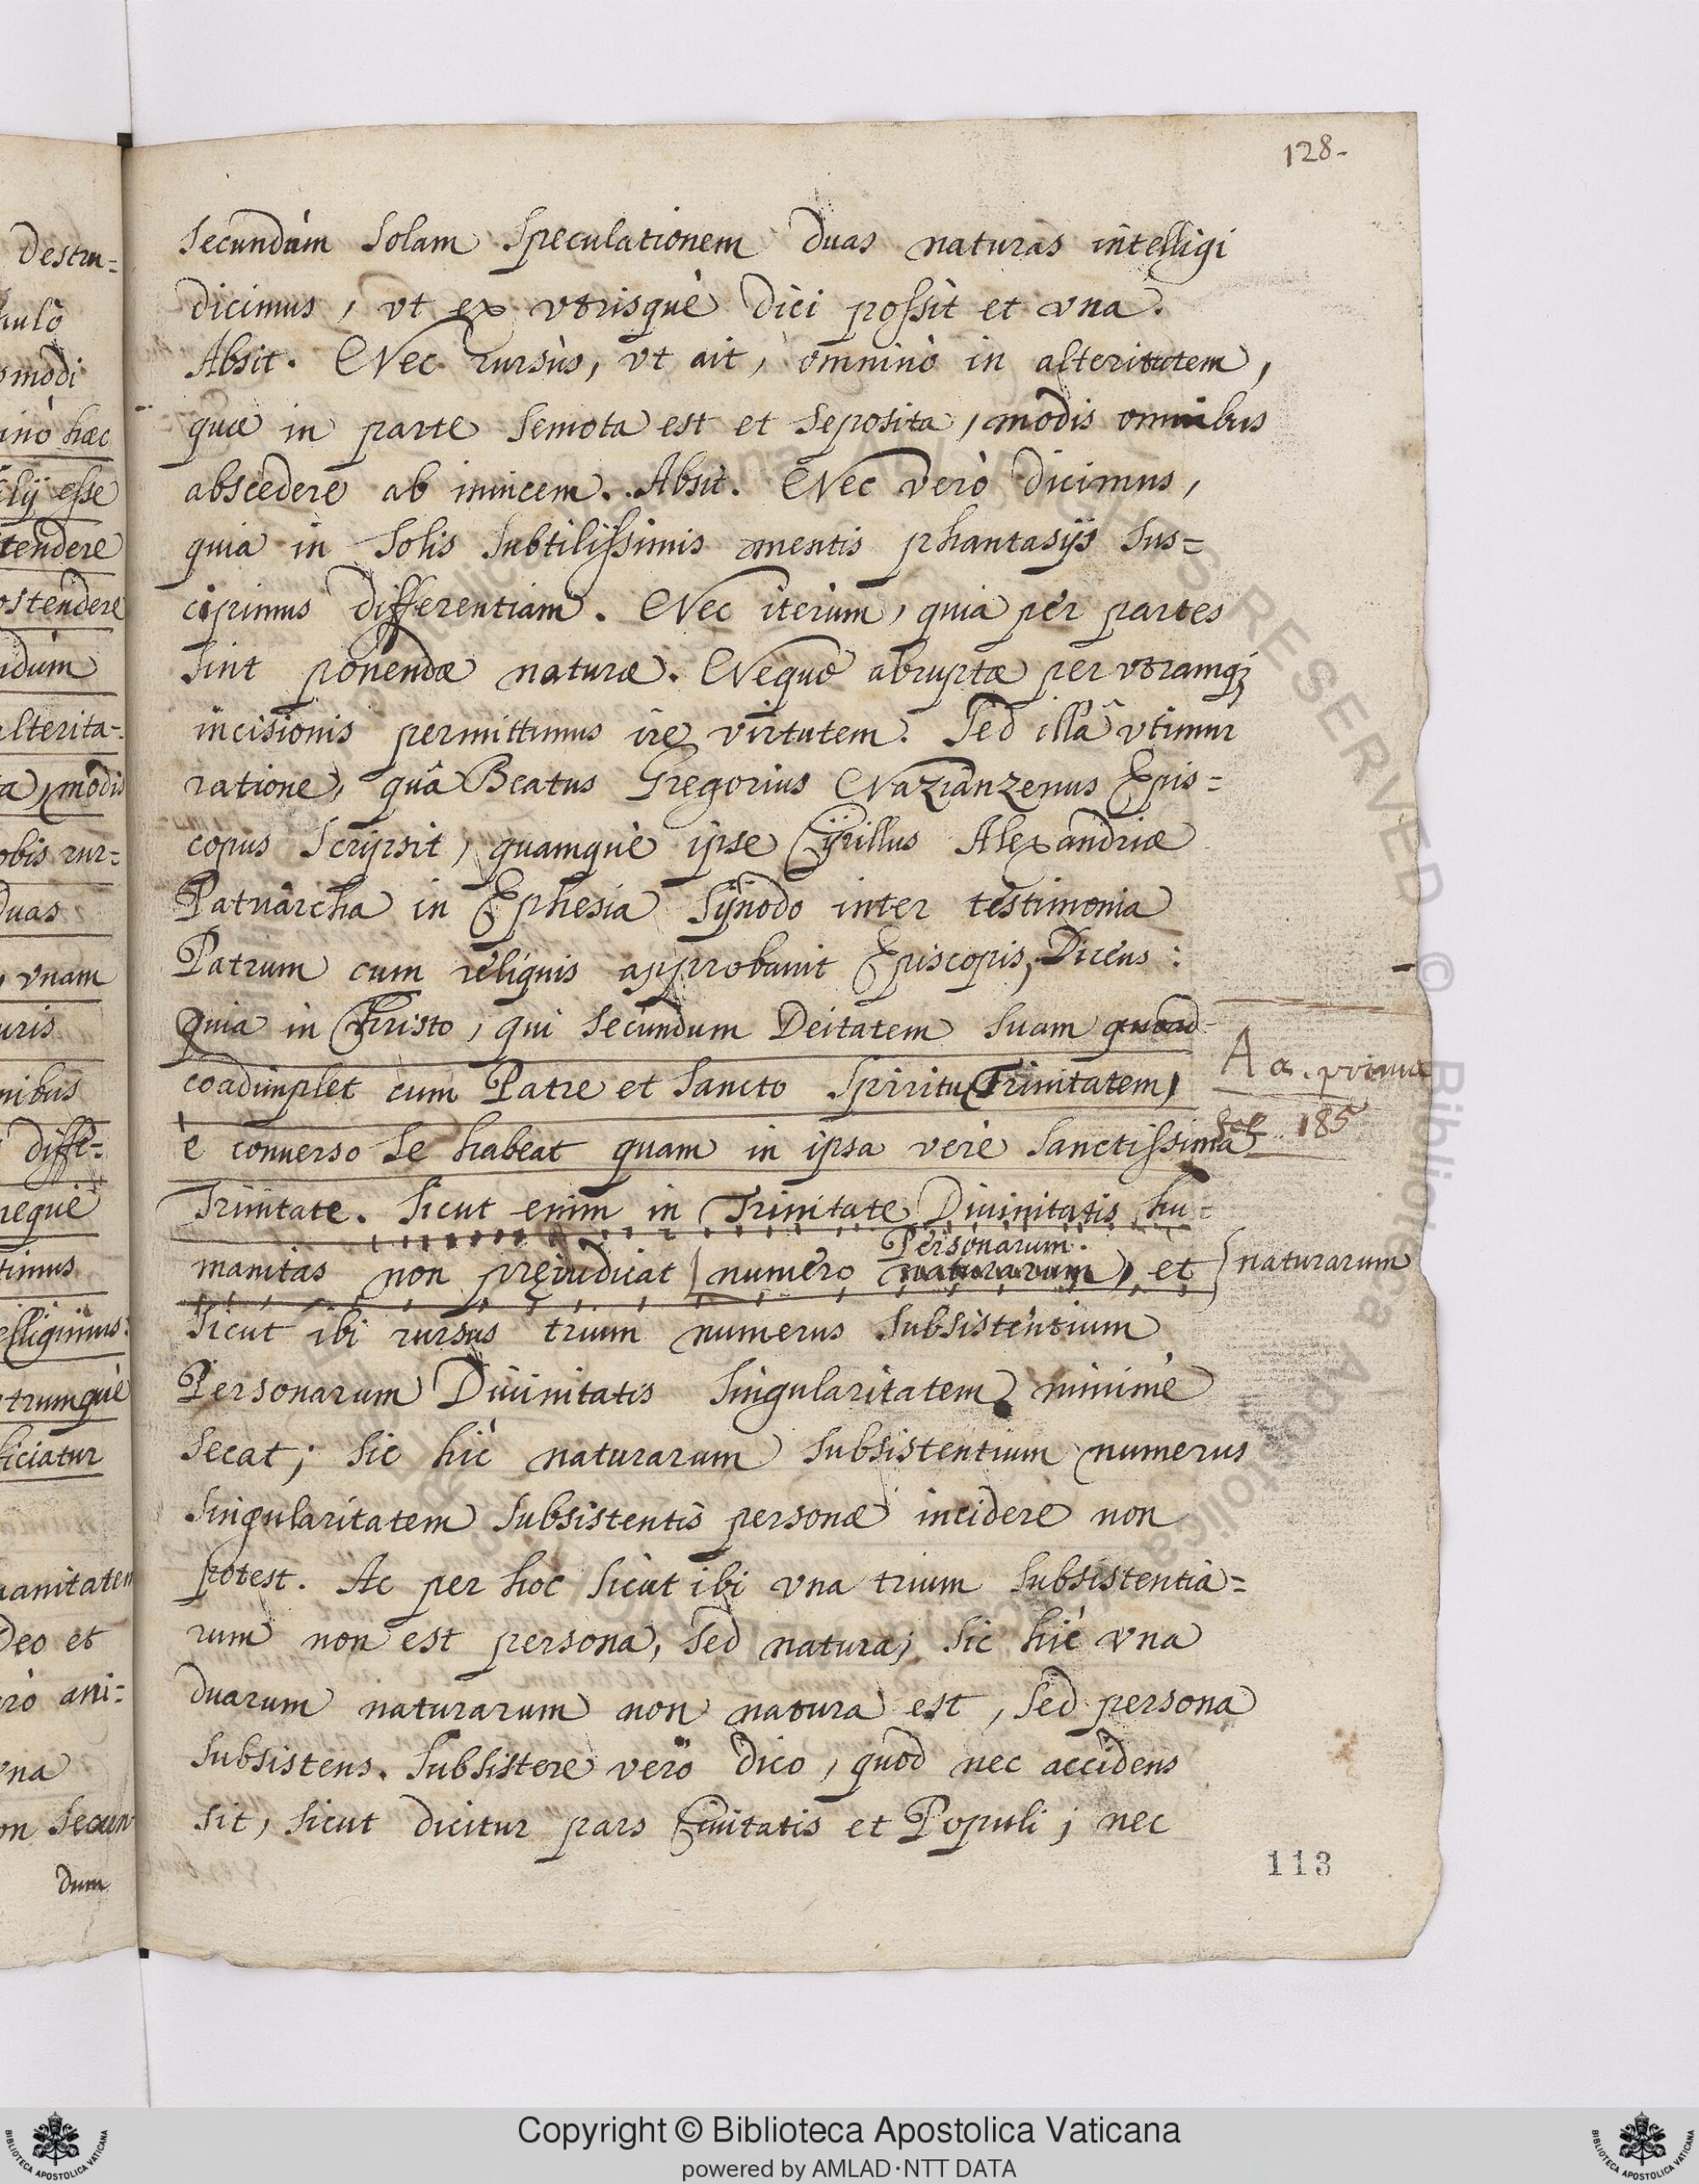 128.
secundùm solam speculationem duas naturas intelligi
dicimus, vt ex vtrisquè dici possit et vna.
Absit. Nec rursùs, vt ait, omninò in alteritatem,
quæ in parte semota est et seposita, modis omnibus
abscedere ab inuicem. Absit. Nec verò dicimus,
quia in solis subtilissimis mentis phantasijs sus=
cipimus differentiam. Nec iterum, quia per partes
sint ponendæ naturæ. Nequè abruptæ per vtramq;
incisionis permittimus ire virtutem. Sed illâ vtimur
ratione, quâ Beatus Gregorius Nazianzenus Epis=
copus scripsit, quamquè ipse Cyrillus Alexandriæ
Patriarcha in Ephesia Synodo inter testimonia
Patrum cum reliquis approbauit Episcopis, Dicens:
Quia in Christo, qui secundum Deitatem suam
coadimplet cum Patre et Sancto Spiritu Trinitatem,
è conuerso se habeat quam in ipsa verè Sanctissima
Trinitate. Sicut enim in Trinitate Diuinitatis hu=
Personarum.
manitas non pręiudicat numero naturarum, et
Sicut ibi rursus trium numerus subsistentium
Personarum Diuinitatis singularitatem minimè
secat; sic hìc naturarum subsistentium numerus
singularitatem subsistentis personæ incidere non
potest. Ac per hoc sicut ibi vna trium subsistentia=
rum non est persona, sed natura; sic hìc vna
duarum naturarum non natura est, sed persona
subsistens. Subsistere verò dico, quod nec accidens
sit, sicut dicitur pars Ciuitatis et Populi; nec
A a. prima
fol. 185
naturarum
113
Destru=
modi
inò hæc
ilij esse
tendere
ostendere
ndùm
alterita=
ta, modis
obis rur=
duas
, vnam
uris
nibus
diffe=
nequè
timus
elligimus
trumquè
ficiatur
manitatem
Deo et
rò ani=
vna
on secun
dum
Copyright © Biblioteca Apostolica Vaticana
powered by AMLAD·NTT DATA